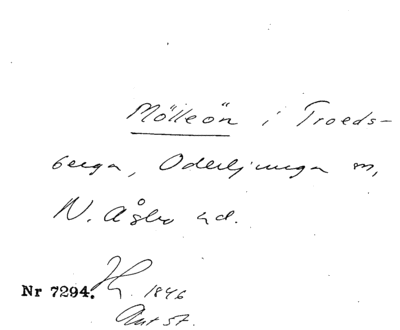 Mölleön i Troeds-
berga, Oderljunga sn,
N. Åsbo hd.
Nr 7294. 1846